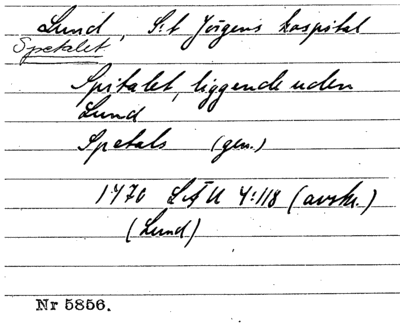 Lund, S:t Jörgens hospital
Spetalet
Spitalet, liggende uden
Lund
Spetals (gen.)
1470 LÄU 4:118 (avskr.)
(Lund)
Nr 5856.